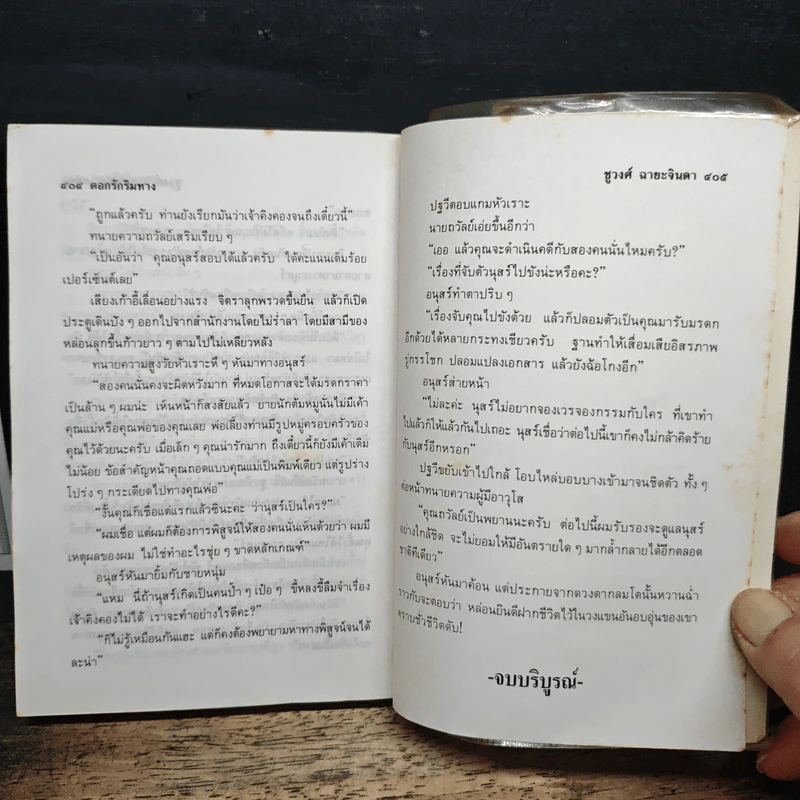 ๔๐๔ ดอกรักริมทาง
"ถูกแล้วครับ ท่านยังเรียกมันว่าเจ้าคิงคองจนถึงเดี๋ยวนี้"
ทนายความถวัลย์เสริมเรียบ ๆ
"เป็นอันว่า คุณอนุสร์สอบได้แล้วครับ ได้คะแนนเต็มร้อย
เปอร์เซ็นต์เลย"
เสียงเก้าอี้เลื่อนอย่างแรง จิตราลุกพรวดขึ้นยืน แล้วก็เปิด
ประตูเดินปัง ๆ ออกไปจากสำนักงานโดยไม่ร่ำลา โดยมีสามีของ
หล่อนลุกขึ้นก้าวยาว ๆ ตามไปไม่เหลียวหลัง
ทนายความสูงวัยหัวเราะหึ ๆ หันมาทางอนุสร์
"สองคนนั่นคงจะผิดหวังมาก ที่หมดโอกาสจะได้มรดกราคา
เป็นล้าน ๆ ผมน่ะ เห็นหน้าก็สงสัยแล้ว ยายนักต้มหมูนั่นไม่มีเค้า
คุณแม่หรือคุณพ่อของคุณเลย พ่อเลี้ยงท่านมีรูปหมู่ครอบครัวของ
คุณไว้ด้วยนะครับ เมื่อเล็ก ๆ คุณน่ารักมาก ถึงเดี๋ยวนี้ก็ยังมีเค้าเดิม
ไม่น้อย ข้อสำคัญหน้าคุณถอดแบบคุณแม่เป็นพิมพ์เดียว แต่รูปร่าง
โปร่ง ๆ กระเดียดไปทางคุณพ่อ"
"งั้นคุณก็เชื่อแต่แรกแล้วซีนะคะ ว่านุสร์เป็นใคร?"
"ผมเชื่อ แต่ผมก็ต้องการพิสูจน์ให้สองคนนั่นเห็นด้วยว่า ผมมี
เหตุผลของผม ไม่ใช่ทำอะไรชุ่ย ๆ ขาดหลักเกณฑ์"
อนุสร์หันมายิ้มกับชายหนุ่ม
"แหม นี่ถ้านุสร์เกิดเป็นคนป้ำ ๆ เป๋อ ๆ ขี้หลงขี้ลืมจำเรื่อง
เจ้าคิงคองไม่ได้ เราจะทำอย่างไรดีคะ?"
"ก็ไม่รู้เหมือนกันแฮะ แต่ก็คงต้องพยายามหาทางพิสูจน์จนได้
ละน่า"
ชูวงศ์ ฉายะจินดา ๔๐๕
ปฐวีตอบแกมหัวเราะ
นายถวัลย์เอ่ยขึ้นอีกว่า
"เออ แล้วคุณจะดำเนินคดีกับสองคนนั่นไหมครับ?"
"เรื่องที่จับตัวนุสร์ไปขังน่ะหรือคะ?"
อนุสร์ทำตาปริบ ๆ
"เรื่องจับคุณไปขังด้วย แล้วก็ปลอมตัวเป็นคุณมารับมรดก
อีกด้วยได้หลายกระทงเชียวครับ ฐานทำให้เสื่อมเสียอิสรภาพ
ขู่กรรโชก ปลอมแปลงเอกสาร แล้วยังฉ้อโกงอีก"
อนุสร์ส่ายหน้า
"ไม่ละค่ะ นุสร์ไม่อยากจองเวรจองกรรมกับใคร ที่เขาทำ
ไปแล้วก็ให้แล้วกันไปเถอะ นุสร์เชื่อว่าต่อไปนี้เขาก็คงไม่กล้าคิดร้าย
กับนุสร์อีกหรอก"
ปฐวีขยับเข้าไปใกล้ โอบไหล่บอบบางเข้ามาจนชิดตัว ทั้ง ๆ
ต่อหน้าทนายความผู้มีอาวุโส
"คุณถวัลย์เป็นพยานนะครับ ต่อไปนี้ผมรับรองจะดูแลนุสร์
อย่างใกล้ชิด จะไม่ยอมให้มีอันตรายใด ๆ มากล้ำกลายได้อีกตลอด
ชาติทีเดียว"
อนุสร์หันมาค้อน แต่ประกายจากดวงตากลมโตนั้นหวานฉ่ำ
ราวกับจะตอบว่า หล่อนยินดีฝากชีวิตไว้ในวงแขนอันอบอุ่นของเขา
ความชั่วชีวิตดับ!
-จบบริบูรณ์-